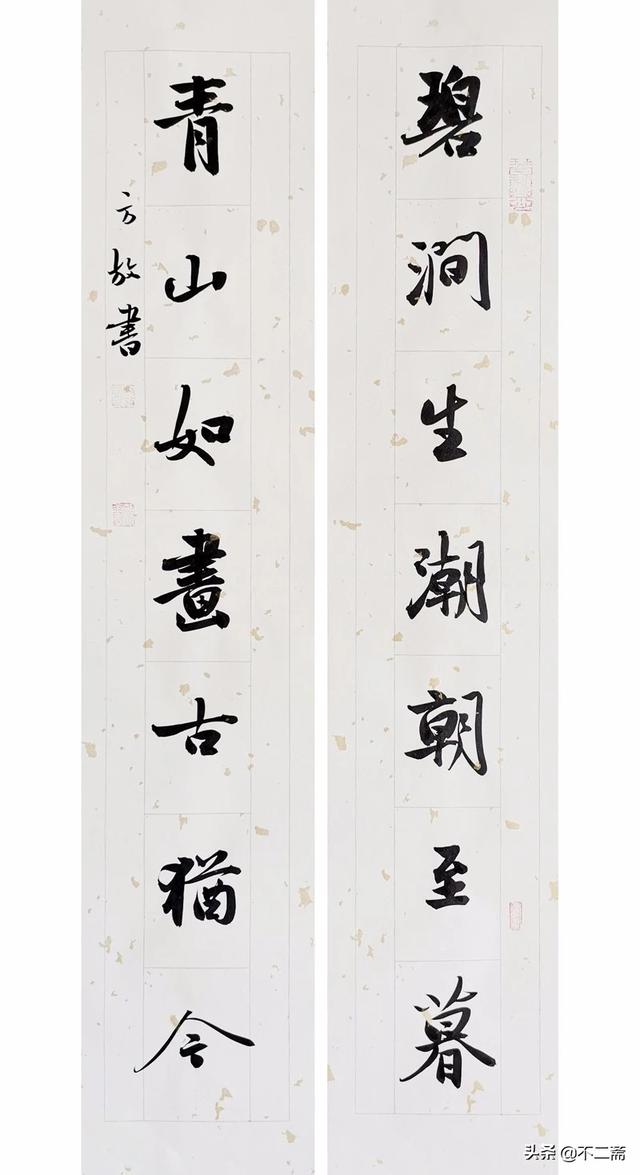 碧澗生潮朝至暮
青山如畫古猶今
方放書
头条 @不二斋